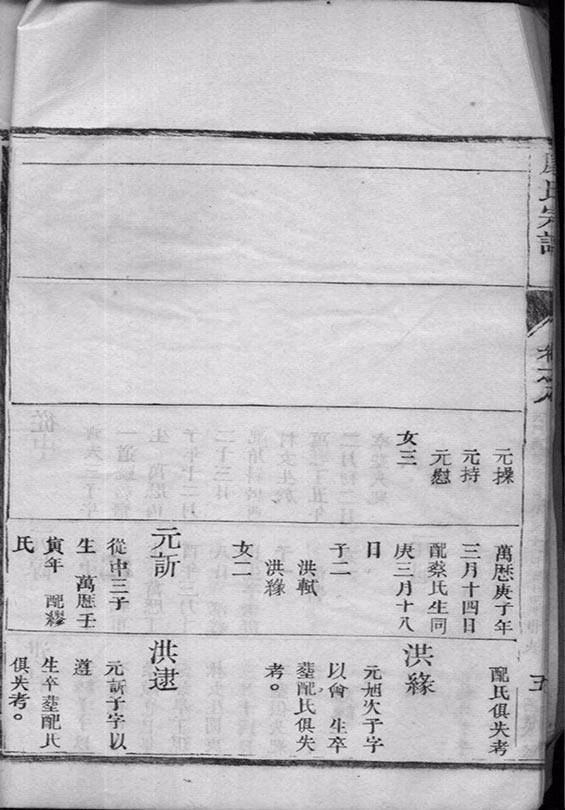 氏宗譜
卷之八
五
元操
元持
元慰
女三
萬歷庚子年
三月十四日
配蔡氏生同
庚三月十八
日
子二
洪軾
洪緣
女二
元訢
從申三子
生 萬歷壬
寅年 配繆
氏
配氏俱失考
洪緣
元旭次子字
以會 生卒
塟配氏俱失
考。
洪逮
元訢子字以
遵
生卒塟配氏
俱失考。